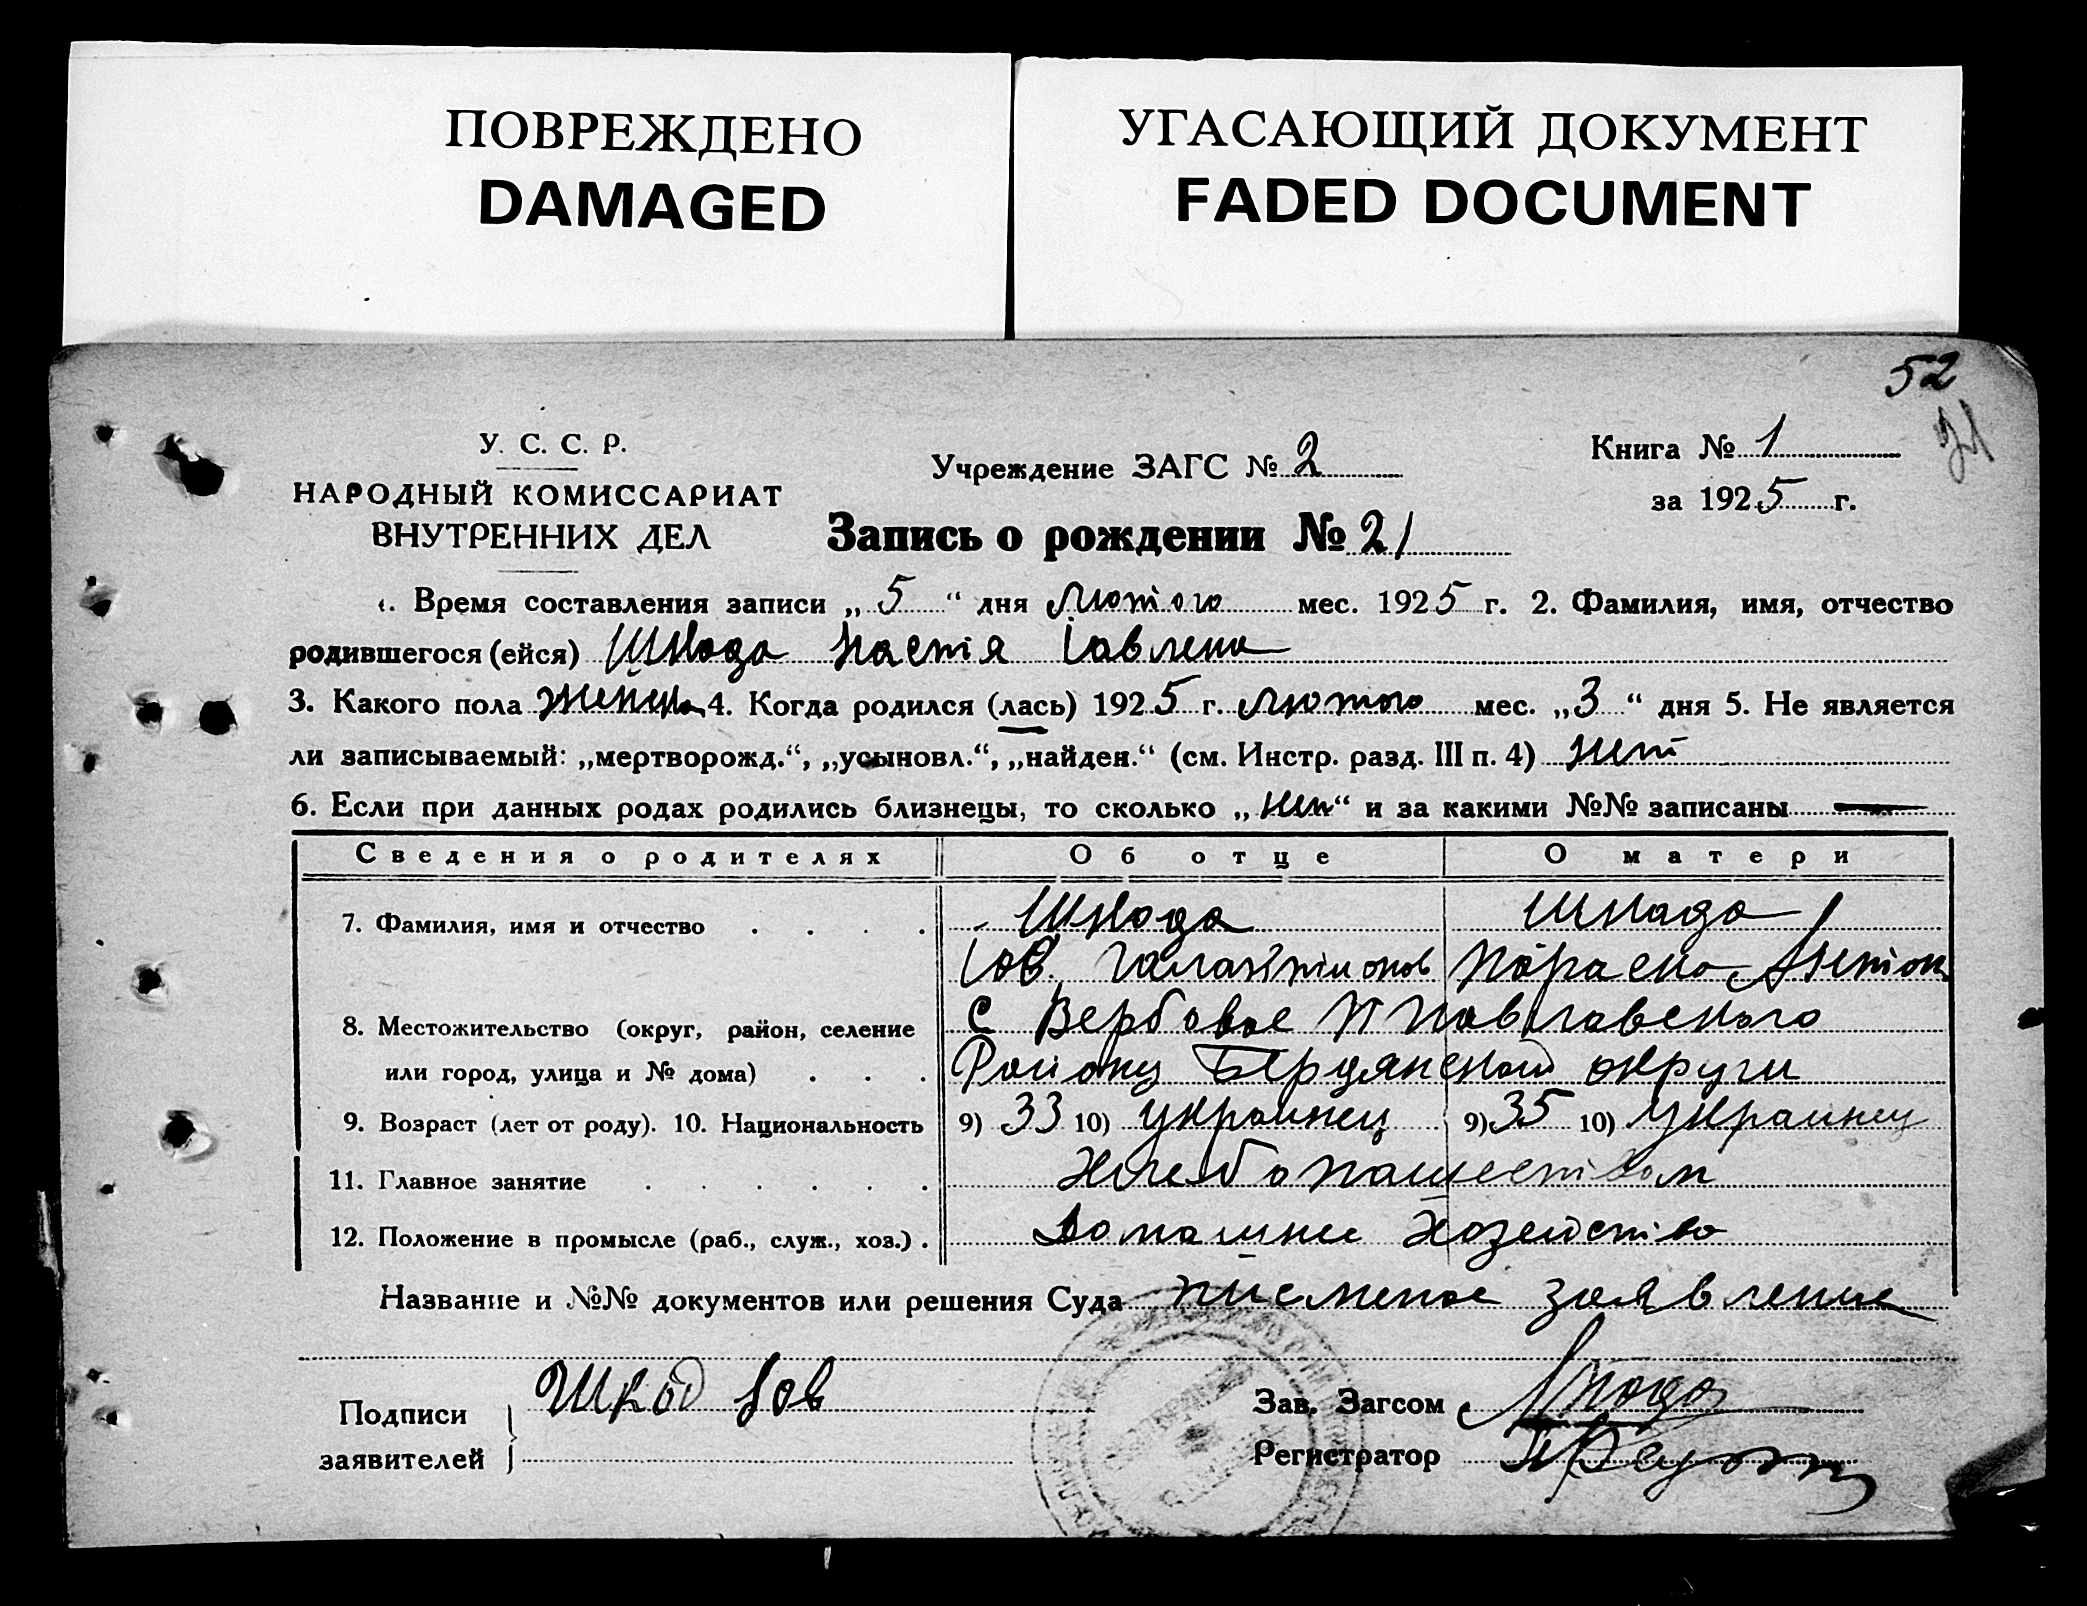 ПОВРЕЖДЕНО
DAMAGED
УГАСАЮЩИЙ ДОКУМЕНТ
FADED DOCUMENT
52
21
У. С. С. Р.
НАРОДНЫЙ КОМИССАРИАТ
ВНУТРЕННИХ ДЕЛ
Учреждение ЗАГС № 2
Книга № 1
за 1925 г.
Запись о рождении № 21
1. Время составления записи „ 5 “ дня Лютого мес. 1925 г. 2. Фамилия, имя, отчество
родившегося (ейся) Шкода Настія Іовлена
3. Какого пола женск 4. Когда родился (лась) 1925 г. Лютого мес. „ 3 “ дня 5. Не является
ли записываемый: „мертворожд.“, „усыновл.“, „найден.“ (см. Инстр. разд. III п. 4) нет
6. Если при данных родах родились близнецы, то сколько „ нет “ и за какими №№ записаны —
Сведения о родителях Об отце О матери
7. Фамилия, имя и отчество Шкода Шкода
Іов. Галактионов Параска
8. Местожительство (округ, район, селение С Вербовое
или город, улица и № дома) Району Бердянской округи
9. Возраст (лет от роду). 10. Национальность 9) 33 10) украинец 9) 35 10) украинец
11. Главное занятие Хлебопашеством
12. Положение в промысле (раб., служ., хоз.) Домашнее хозейство
Название и №№ документов или решения Суда писменое заявление
Подписи
заявителей
Шкод Іов
Зав. Загсом
Регистратор